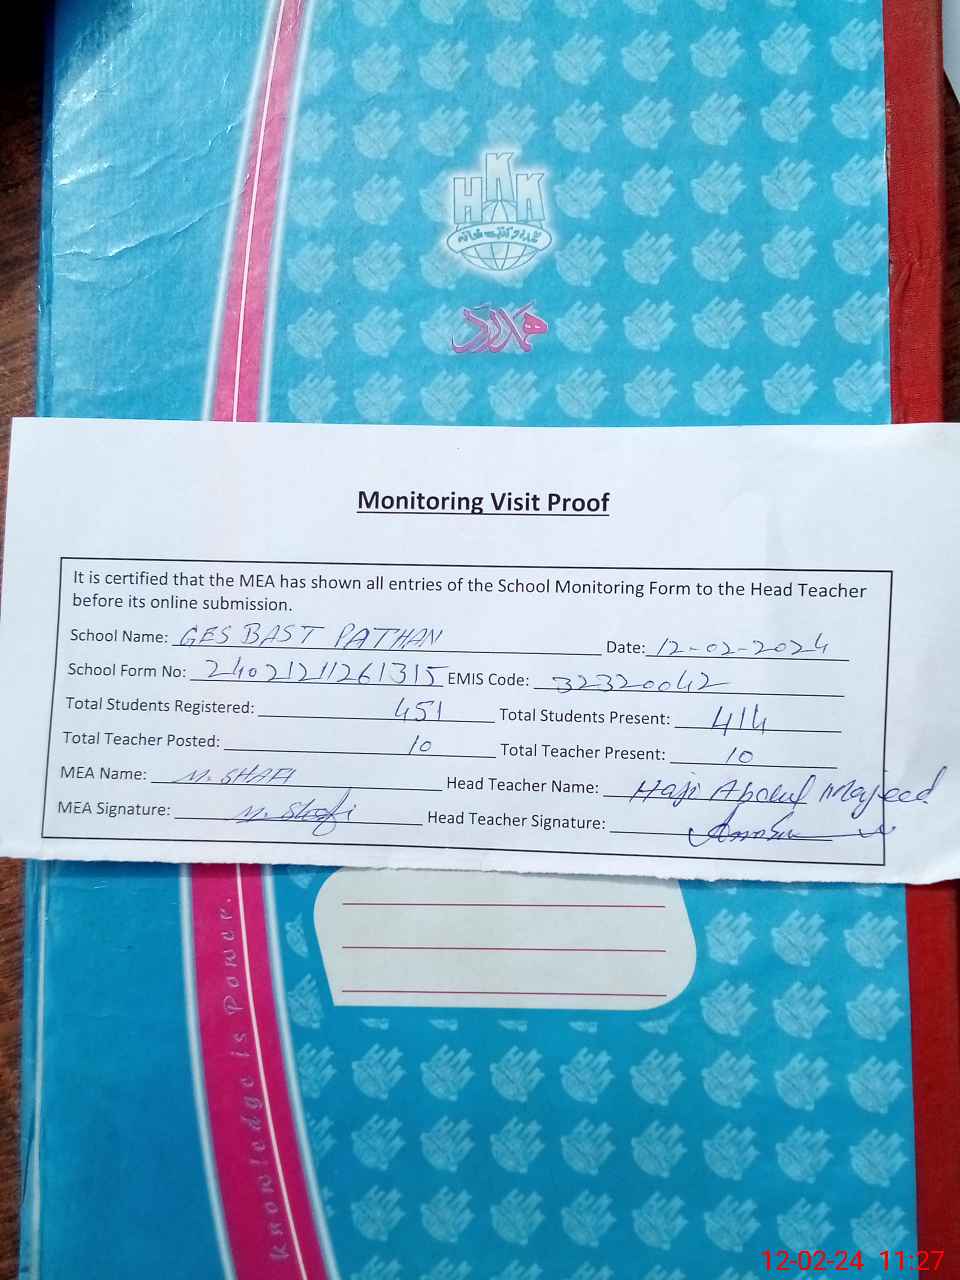 HKK
ہمدرد کتب خانہ
ہمدرد
Monitoring Visit Proof
It is certified that the MEA has shown all entries of the School Monitoring Form to the Head Teacher
before its online submission.
School Name: GES BAST PATHAN Date: 12-02-2024
School Form No: 24021211261315 EMIS Code: 32320042
Total Students Registered: 451 Total Students Present: 414
Total Teacher Posted: 10 Total Teacher Present: 10
MEA Name: M. SHAFI Head Teacher Name: Haji Abdul Majeed
MEA Signature: M. Shafi Head Teacher Signature:
Knowledge is Power.
12-02-24 11:27